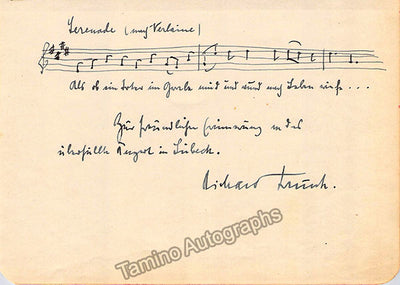 Serenade (nach Verlaine)
Als ob ein Toter im Grabe müd und wund nach Leben riefe . . .
Zur freundlichen Erinnerung an das
überfüllte Konzert in Lübeck.
Richard Trunk.
Tamino Autographs